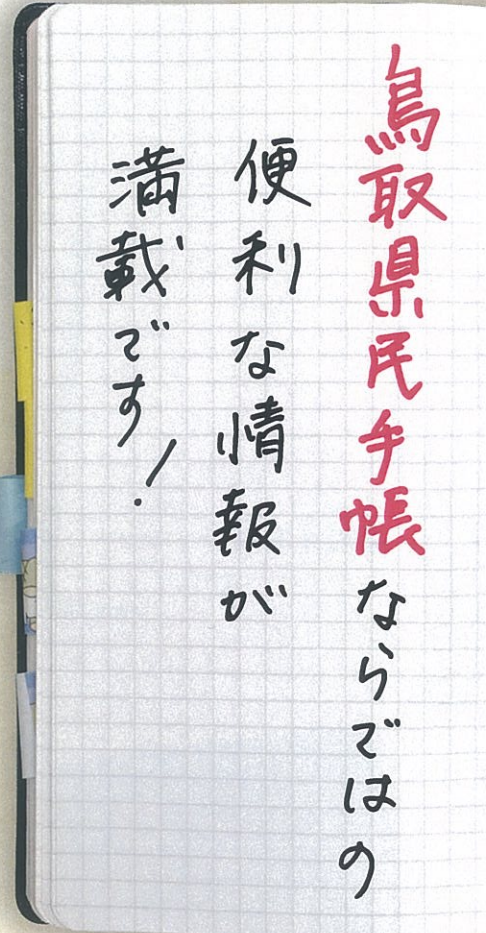 鳥取県民手帳ならではの
便利な情報が
満載です！